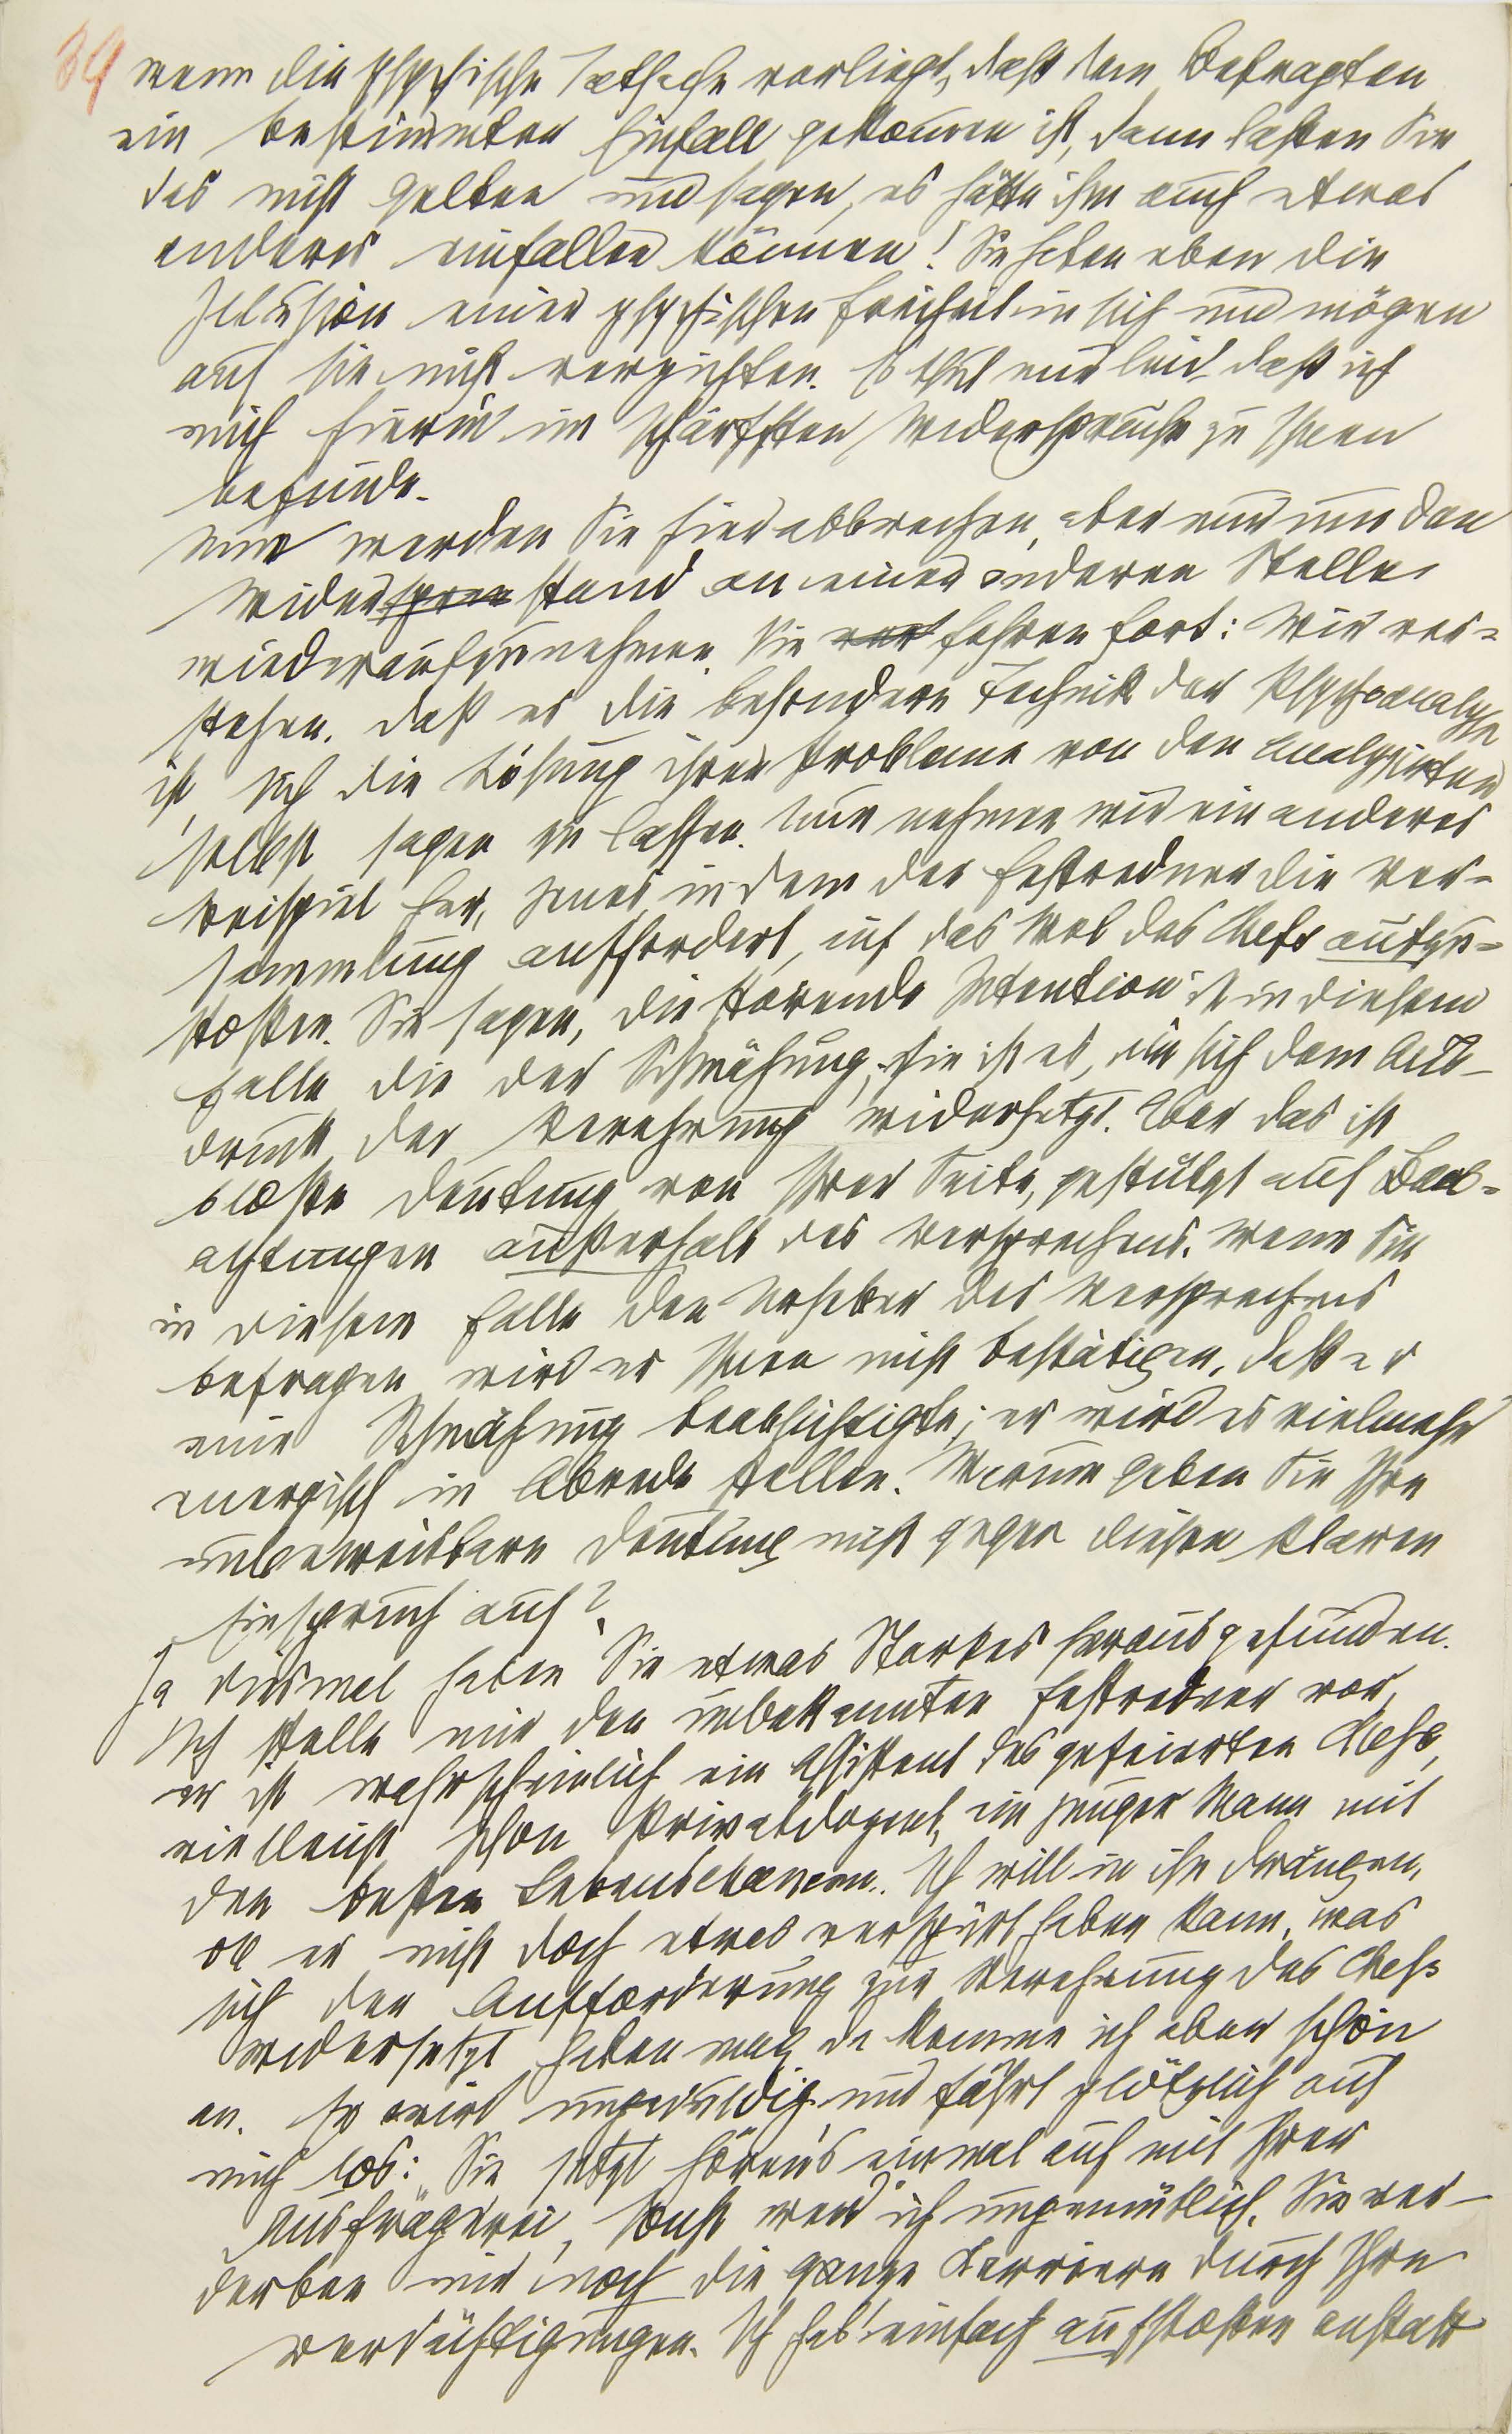 39
wenn die psychische Tatsache vorliegt, daß dem Befragten
ein bestimmter Einfall gekommen ist, dann lassen Sie
das nicht gelten und sagen, es hätte ihm auch etwas
anderes einfallen können! Sie haben eben die
Illusion einer psychischen Freiheit in sich und mögen
auf sie nicht verzichten. Es thut mir leid, daß ich
mich hierin im schärfsten Widerspruche zu Ihnen
befinde.
Nun werden Sie hier abbrechen, aber nur um den
Widerspruch stand an einer anderen Stelle
wiederaufzunehmen. Sie fahren fort: Wir ver=
stehen, daß es die besondere Technik der Psychoanalyse
ist, sich die Lösung ihrer Probleme von den Analysirten
selbst sagen zu lassen. Nun nehmen wir ein anderes
Beispiel her, jenes in dem der Festredner die Ver=
sammlung auffordert, auf das Wol des Chefs aufzu=
stoßen. Sie sagen, die störende Intention ist in diesem
Falle die der Schmähung, sie ist es, die sich dem Aus=
druck der Verehrung widersetzt. Aber das ist
bloße Deutung von Ihrer Seite, gestützt auf Beob=
achtungen außerhalb des Versprechens. Wenn Sie
in diesem Falle den Urheber des Versprechens
befragen, wird er Ihnen nicht bestätigen, daß er
eine Schmähung beabsichtigte; er wird es vielmehr
energisch in Abrede stellen. Warum geben Sie Ihre
unbeweisbare Deutung nicht gegen diesen klaren
Einspruch auf?
Ja diesmal haben Sie etwas Starkes herausgefunden.
Ich stelle mir den unbekannten Festredner vor,
er ist wahrscheinlich ein Assistent des gefeierten Chefs,
vielleicht schon Privatdozent, ein junger Mann mit
den besten Lebenschancen. Ich will in ihn drängen,
ob er nicht doch etwas verspürt haben kann, was
sich der Aufforderung zur Verehrung des Chefs
widersetzt haben mag, da komme ich aber schön
an. Er wird ungeduldig und fährt plötzlich auf
mich los: Sie jetzt hören's einmal auf mit Ihrer
Ausfrägerei, sonst werd' ich ungemütlich. Sie ver=
derben mir noch die ganze Karriere durch Ihre
Verdächtigungen. Ich hab' einfach aufstoßen anstatt